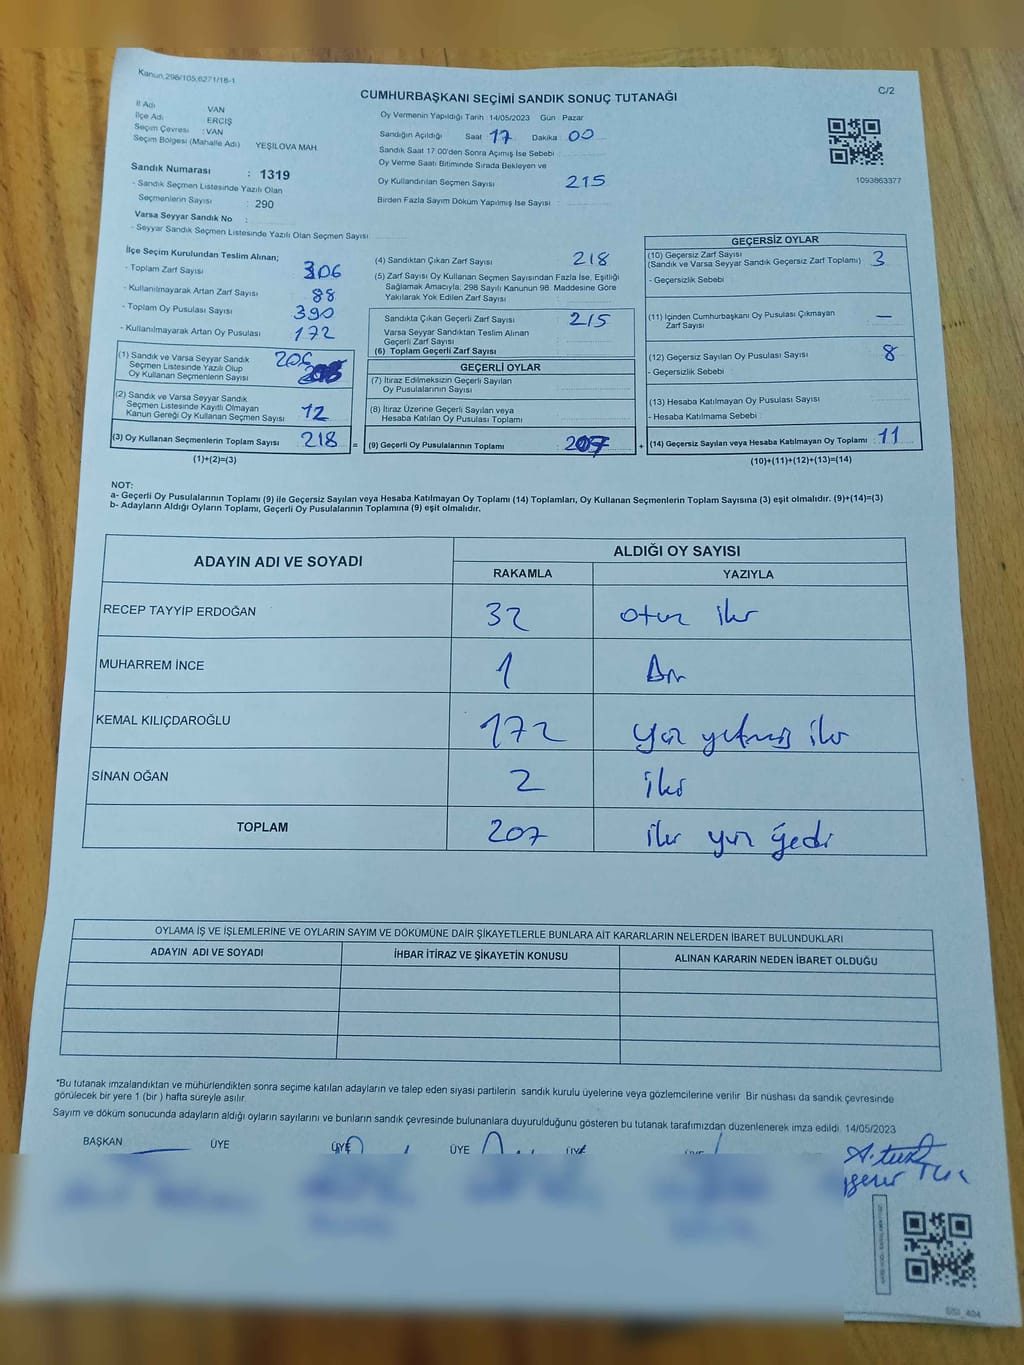 Kanun,298/105;6271/18-1
C/2
CUMHURBAŞKANI SEÇİMİ SANDIK SONUÇ TUTANAĞI
İl Adı VAN
İlçe Adı : ERCİŞ
Seçim Çevresi : VAN
Seçim Bölgesi (Mahalle Adı) YEŞİLOVA MAH.
Sandık Numarası : 1319
- Sandık Seçmen Listesinde Yazılı Olan
Seçmenlerin Sayısı : 290
Varsa Seyyar Sandık No :
- Seyyar Sandık Seçmen Listesinde Yazılı Olan Seçmen Sayısı
Oy Vermenin Yapıldığı Tarih : 14/05/2023 Gün : Pazar
Sandığın Açıldığı Saat 17 Dakika 00
Sandık Saat 17:00'den Sonra Açımış İse Sebebi :
Oy Verme Saati Bitiminde Sırada Bekleyen ve
Oy Kullandırılan Seçmen Sayısı : 215
Birden Fazla Sayım Döküm Yapılmış İse Sayısı :
1093863377
İlçe Seçim Kurulundan Teslim Alınan;
- Toplam Zarf Sayısı 306
- Kullanılmayarak Artan Zarf Sayısı 88
- Toplam Oy Pusulası Sayısı 390
- Kullanılmayarak Artan Oy Pusulası : 172
(1) Sandık ve Varsa Seyyar Sandık 206
Seçmen Listesinde Yazılı Olup
Oy Kullanan Seçmenlerin Sayısı
(2) Sandık ve Varsa Seyyar Sandık
Seçmen Listesinde Kayıtlı Olmayan
Kanun Gereği Oy Kullanan Seçmen Sayısı : 12
(3) Oy Kullanan Seçmenlerin Toplam Sayısı : 218 =
(1)+(2)=(3)
(4) Sandıktan Çıkan Zarf Sayısı 218
(5) Zarf Sayısı Oy Kullanan Seçmen Sayısından Fazla İse, Eşitliği
Sağlamak Amacıyla, 298 Sayılı Kanunun 98. Maddesine Göre
Yakılarak Yok Edilen Zarf Sayısı :
Sandıkta Çıkan Geçerli Zarf Sayısı : 215
Varsa Seyyar Sandıktan Teslim Alınan
Geçerli Zarf Sayısı :
(6) Toplam Geçerli Zarf Sayısı
GEÇERLİ OYLAR
(7) İtiraz Edilmeksizin Geçerli Sayılan
Oy Pusulalarının Sayısı :
(8) İtiraz Üzerine Geçerli Sayılan veya
Hesaba Katılan Oy Pusulası Toplamı :
(9) Geçerli Oy Pusulalarının Toplamı : 207 +
GEÇERSİZ OYLAR
(10) Geçersiz Zarf Sayısı
(Sandık ve Varsa Seyyar Sandık Geçersiz Zarf Toplamı) : 3
- Geçersizlik Sebebi :
(11) İçinden Cumhurbaşkanı Oy Pusulası Çıkmayan
Zarf Sayısı : —
(12) Geçersiz Sayılan Oy Pusulası Sayısı : 8
- Geçersizlik Sebebi :
(13) Hesaba Katılmayan Oy Pusulası Sayısı :
- Hesaba Katılmama Sebebi :
(14) Geçersiz Sayılan veya Hesaba Katılmayan Oy Toplamı : 11
(10)+(11)+(12)+(13)=(14)
NOT:
a- Geçerli Oy Pusulalarının Toplamı (9) ile Geçersiz Sayılan veya Hesaba Katılmayan Oy Toplamı (14) Toplamları, Oy Kullanan Seçmenlerin Toplam Sayısına (3) eşit olmalıdır. (9)+(14)=(3)
b- Adayların Aldığı Oyların Toplamı, Geçerli Oy Pusulalarının Toplamına (9) eşit olmalıdır.
ADAYIN ADI VE SOYADI
ALDIĞI OY SAYISI
RAKAMLA YAZIYLA
RECEP TAYYİP ERDOĞAN 32 otuz iki
MUHARREM İNCE 1 Bir
KEMAL KILIÇDAROĞLU 172 yüz yetmiş iki
SİNAN OĞAN 2 iki
TOPLAM 207 iki yüz yedi
OYLAMA İŞ VE İŞLEMLERİNE VE OYLARIN SAYIM VE DÖKÜMÜNE DAİR ŞİKAYETLERLE BUNLARA AİT KARARLARIN NELERDEN İBARET BULUNDUKLARI
ADAYIN ADI VE SOYADI İHBAR İTİRAZ VE ŞİKAYETİN KONUSU ALINAN KARARIN NEDEN İBARET OLDUĞU
*Bu tutanak imzalandıktan ve mühürlendikten sonra seçime katılan adayların ve talep eden siyasi partilerin sandık kurulu üyelerine veya gözlemcilerine verilir. Bir nüshası da sandık çevresinde
görülecek bir yere 1 (bir ) hafta süreyle asılır.
Sayım ve döküm sonucunda adayların aldığı oyların sayılarını ve bunların sandık çevresinde bulunanlara duyurulduğunu gösteren bu tutanak tarafımızdan düzenlenerek imza edildi. 14/05/2023
BAŞKAN ÜYE ÜYE ÜYE ÜYE